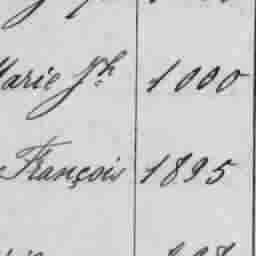 Marie Jh 1000
François 1895